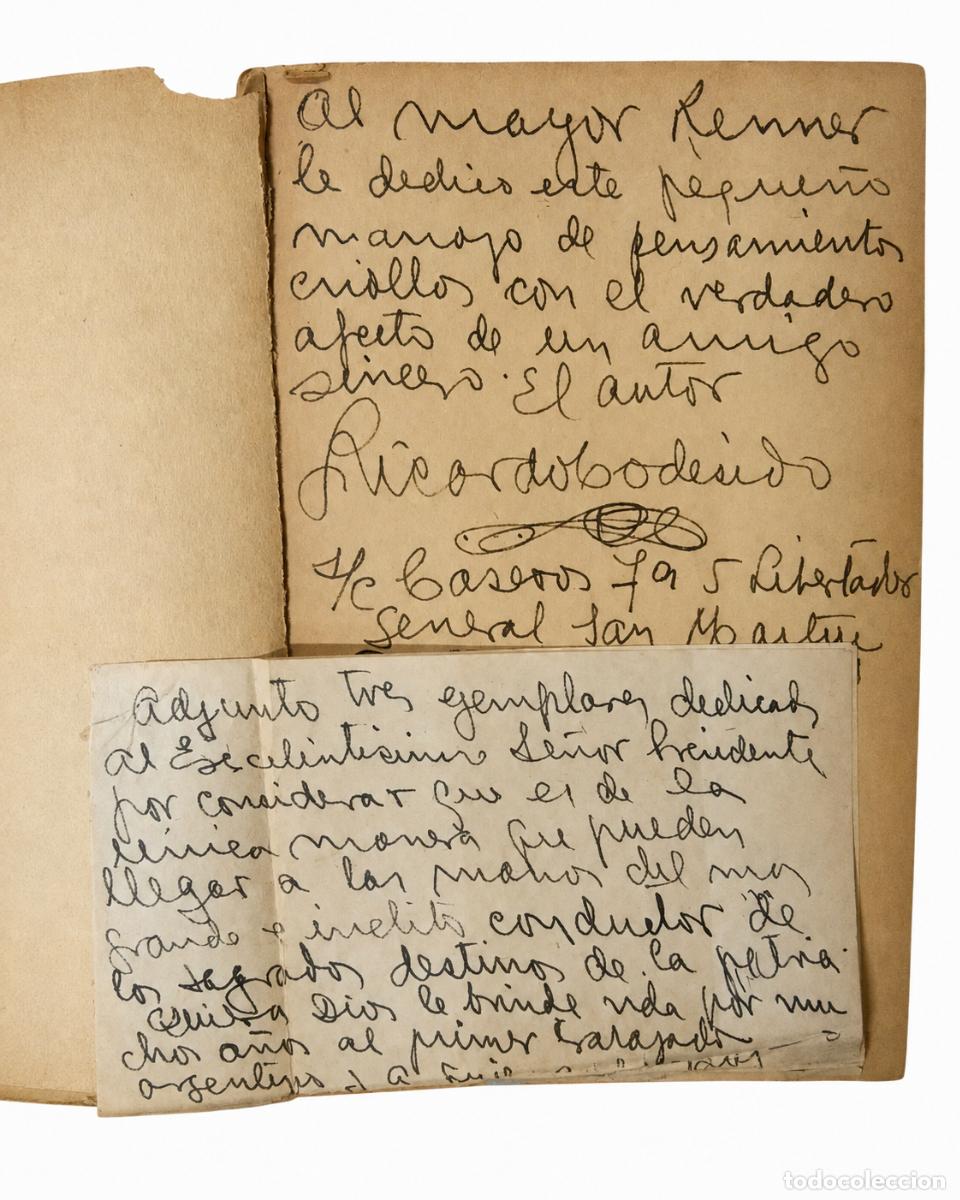 Al mayor Renner
le dedico este pequeño
manojo de pensamientos
criollos con el verdadero
afecto de un amigo
sincero. El autor
Ricardo Codesido
s/c Caseros 795 Libertador
General San Martin
Adjunto tres ejemplares dedicados
al Esecelentisimo Señor Presidente
por considerar que es de la
unica manera que pueden
llegar a las manos del mas
grande e inclito conductor de
los sagrados destinos de la patria.
Quiera Dios le brinde vida por mu
chos años al primer trabajador
argentino
todocoleccion